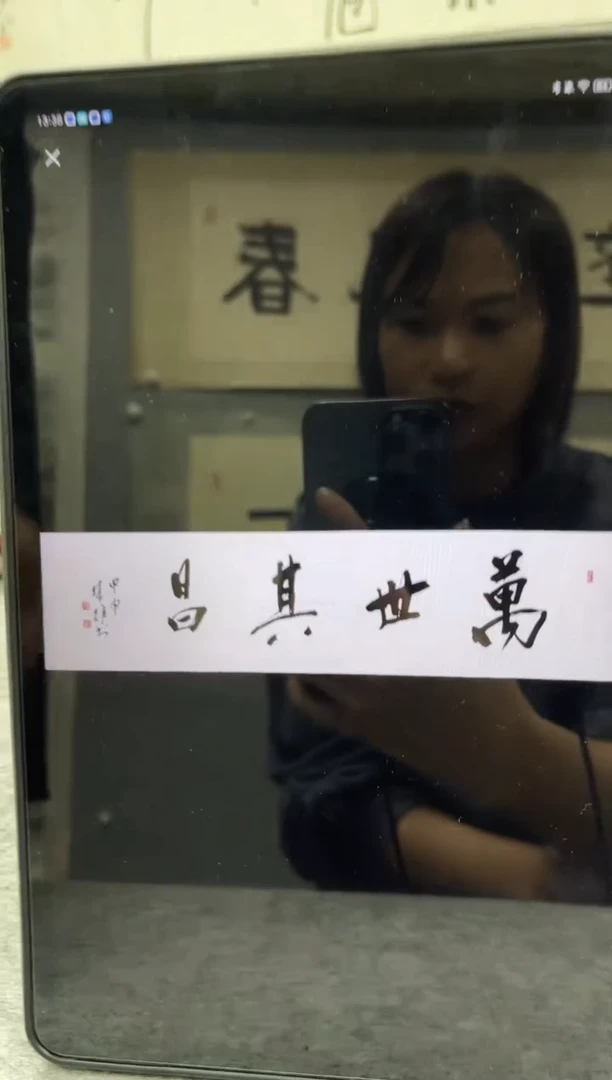 13:38
春
萬世其昌
甲申